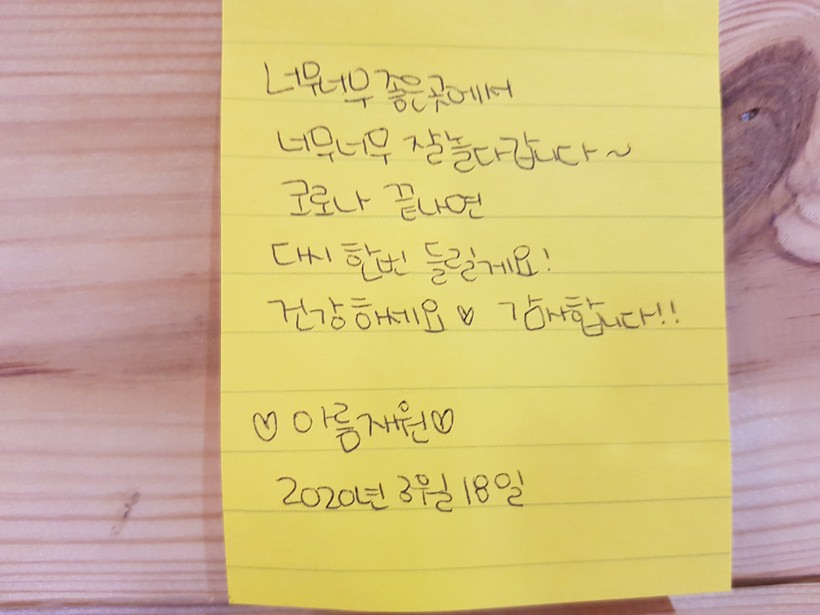 너무너무 좋은곳에서
너무너무 잘놀다갑니다~
코로나 끝나면
다시 한번 들릴게요!
건강하세요♡ 감사합니다!!
♡아름재원♡
2020년 3월 18일